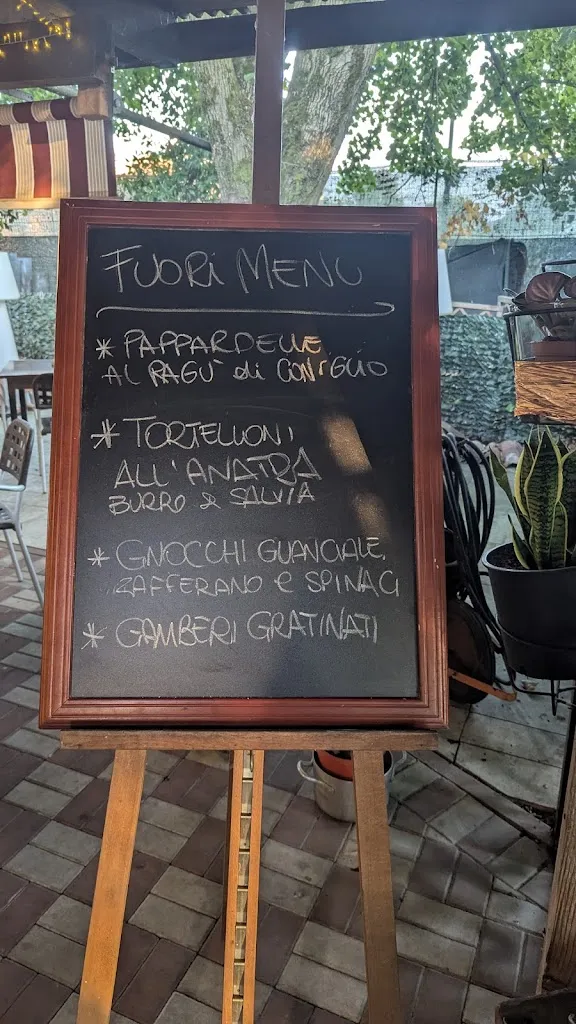 FUORI MENU
* PAPPARDELLE
AL RAGU' di CONIGLIO
* TORTELLONI
ALL'ANATRA
BURRO & SALVIA
* GNOCCHI GUANCIALE,
ZAFFERANO e SPINACI
* GAMBERI GRATINATI